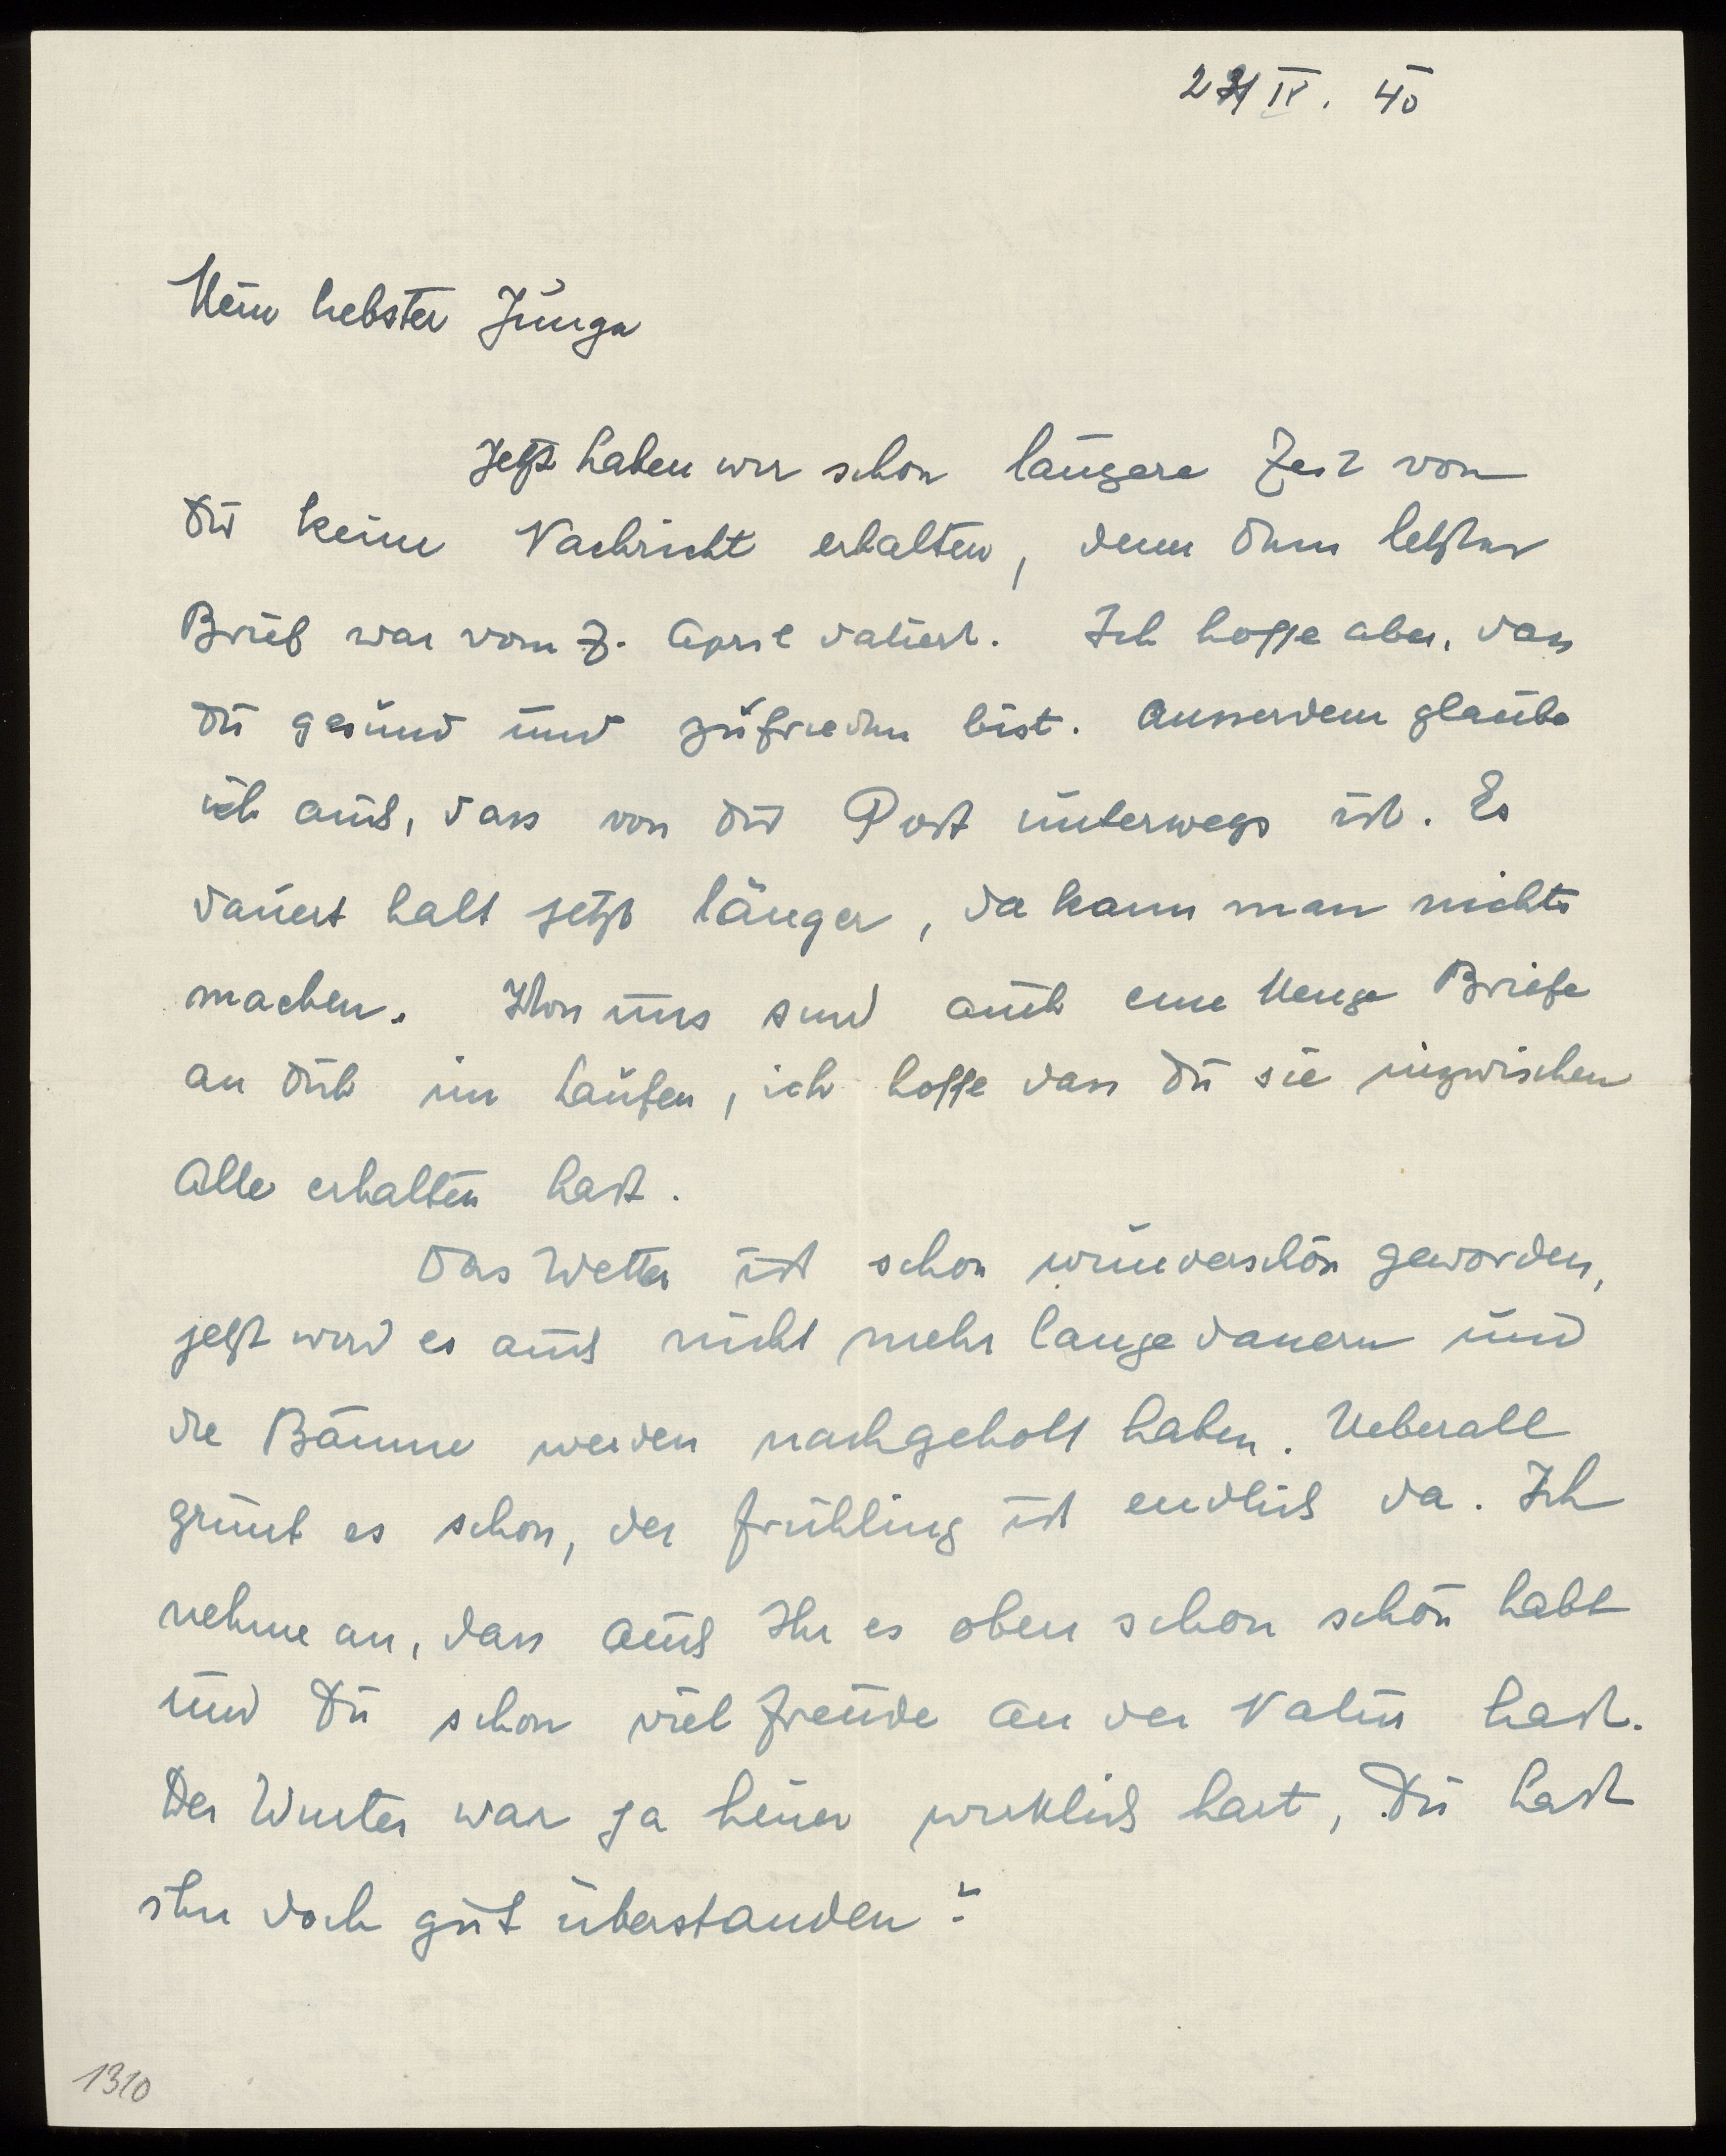 IV. 40
Mein liebster Junge
Jetzt haben wir schon längere Zeit von
Dir keine Nachricht erhalten, denn Dein letzter
Brief war vom 7. April datiert. Ich hoffe aber, dass
Du gesund und zufrieden bist. Ausserdem glaube
ich auch, dass von Dir Post unterwegs ist. Es
dauert halt jetzt länger, da kann man nichts
machen. Von uns sind auch eine Menge Briefe
an Dich im Laufen, ich hoffe dass Du sie inzwischen
Alle erhalten hast.
Das Wetter ist schon wunderschön geworden,
jetzt wird es auch nicht mehr lange dauern und
die Bäume werden nachgeholt haben. Ueberall
grünt es schon, der Frühling ist endlich da. Ich
nehme an, dass auch Ihr es oben schon schön habt
und Du schon viel Freude an der Natur hast.
Der Winter war ja heuer wirklich hart, Du hast
ihn doch gut überstanden?
1310